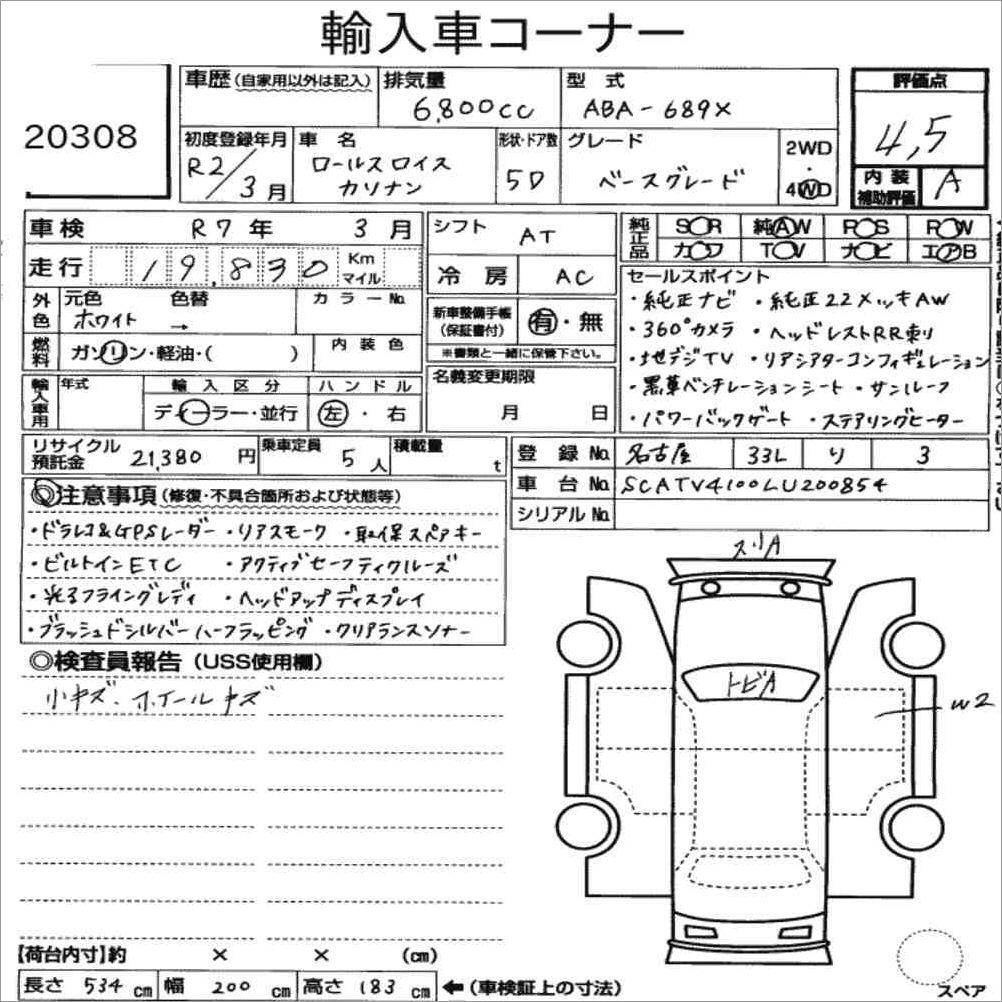 輸入車コーナー
20308
車歴 (自家用以外は記入) 排気量 型式 評価点
6,800cc ABA-689X 4,5
初度登録年月 車名 形状・ドア数 グレード 2WD・4WD
R2/3月 ロールスロイス カリナン 5D ベースグレード
内装補助評価 A
車検 R7年 3月
走行 19,830 Km マイル
外色 元色 色替 カラーNo.
ホワイト →
燃料 ガソリン・軽油・( ) 内装色
輸入車用 年式 輸入区分 ハンドル
ディーラー・並行 左・右
シフト AT
冷房 AC
新車整備手帳(保証書付) 有・無
※書類と一緒に保管下さい。
名義変更期限
月 日
純正品 SOR 純AW POS ROW
カワ TOV ナビ エアB
セールスポイント
・純正ナビ ・純正22メッキAW
・360°カメラ ・ヘッドレストRR乗り
・地デジTV ・リアシアターコンフィギュレーション
・黒革ベンチレーションシート ・サンルーフ
・パワーバックゲート ・ステアリングヒーター
リサイクル預託金 21,380円 乗車定員 5人 積載量 t
登録No. 名古屋 33L り 3
車台No. SCATV4100LU200854
シリアルNo.
◎注意事項 (修復・不具合箇所および状態等)
・ドラレコ&GPSレーダー ・リアスモーク ・取保スペアキー
・ビルトインETC ・アクティブセーフティクルーズ
・光るフライングレディ ・ヘッドアップディスプレイ
・ブラッシュドシルバーハーフラッピング ・クリアランスソナー
◎検査員報告 (USS使用欄)
小キズ、ホイールキズ
スリA
トビA
W2
【荷台内寸】約 × × (cm)
長さ 534 cm 幅 200 cm 高さ 183 cm ←(車検証上の寸法)
スペア